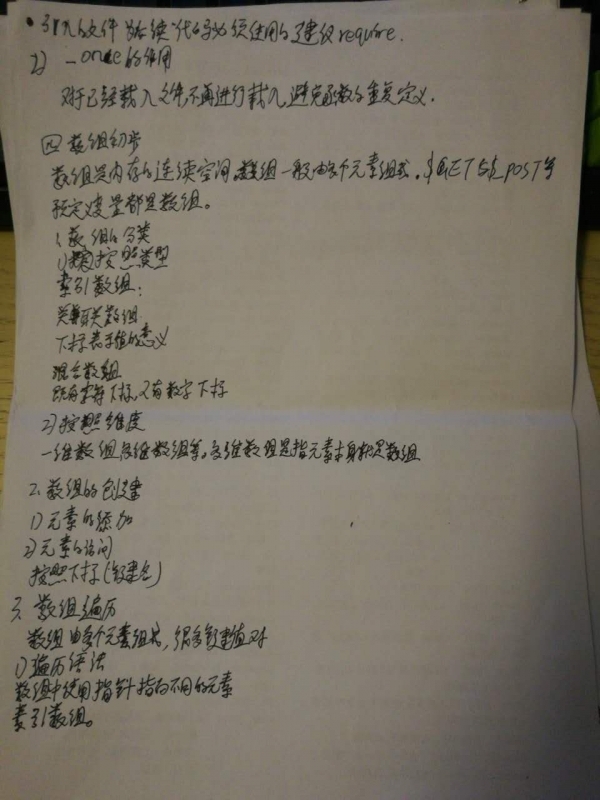 •引入的文件为后续代码必须使用的建议require.
2) _once的作用
对于已经载入文件,不再进行载入,避免函数的重复定义.
四 数组初步
数组是内存的连续空间,数组一般由多个元素组成,$GET与$_POST等
预定义变量都是数组。
1、数组的分类
1)按照类型
索引数组:
关联数组
下标表示值的意义
混合数组
既有字符下标,又有数字下标
2)按照维度
一维数组多维数组等。多维数组是指元素本身就是数组
2、数组的创建
1)元素的添加
2)元素的访问
按照下标(键名)
3、数组遍历
数组由多个元素组成,很多键值对
1)遍历语法
数组中使用指针指向不同的元素
索引数组。